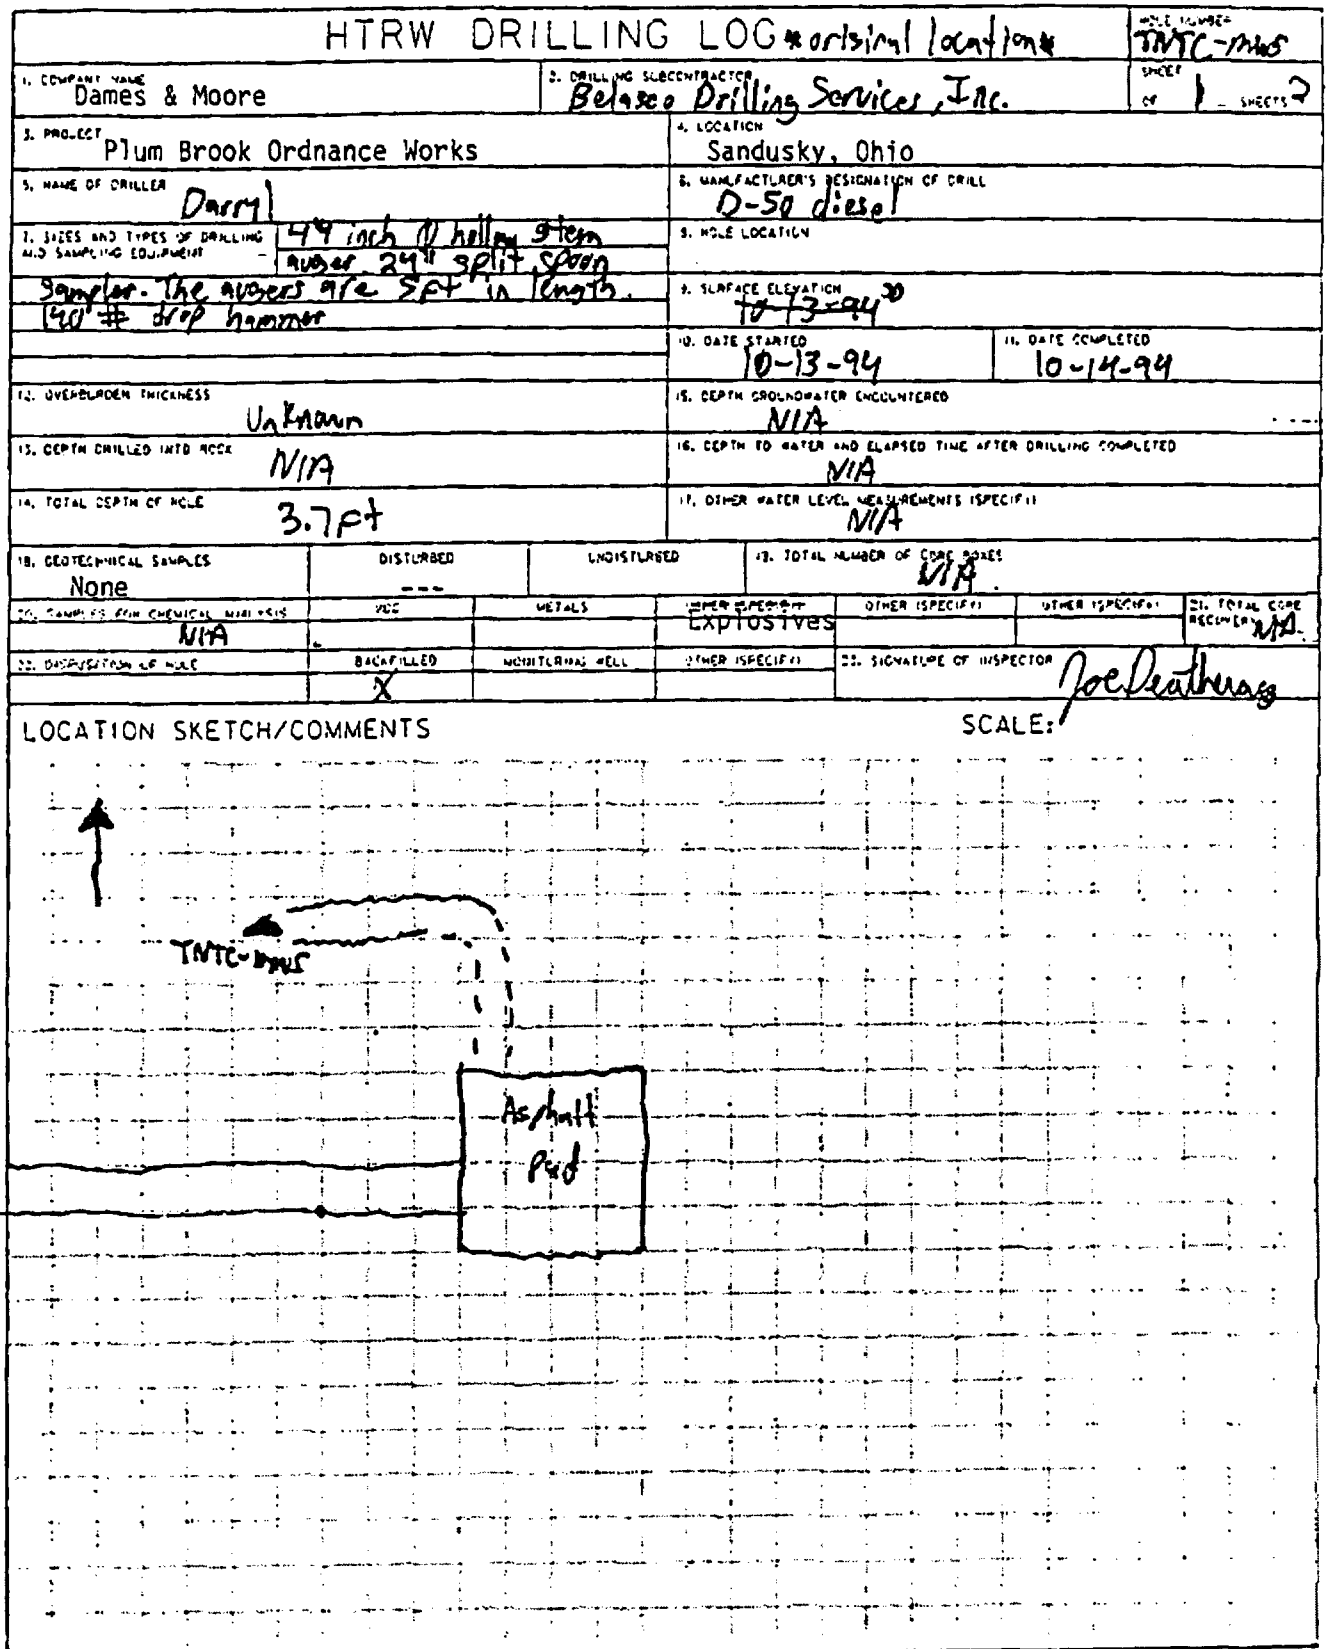 HTRW DRILLING LOG *original location*
HOLE NUMBER
TNTC-MW5
1. COMPANY NAME
Dames & Moore
2. DRILLING SUBCONTRACTOR
Belasco Drilling Services, Inc.
SHEET 1
OF SHEETS 2
3. PROJECT
Plum Brook Ordnance Works
4. LOCATION
Sandusky, Ohio
5. NAME OF DRILLER
Darryl
6. MANUFACTURER'S DESIGNATION OF DRILL
D-50 diesel
7. SIZES AND TYPES OF DRILLING
AND SAMPLING EQUIPMENT
inch ID hollow stem
auger 24" split spoon
sampler. The augers are 5ft in length.
140 # drop hammer
8. HOLE LOCATION
9. SURFACE ELEVATION
10-13-94 JD
10. DATE STARTED
10-13-94
11. DATE COMPLETED
10-14-94
12. OVERBURDEN THICKNESS
Unknown
15. DEPTH GROUNDWATER ENCOUNTERED
N/A
13. DEPTH DRILLED INTO ROCK
N/A
16. DEPTH TO WATER AND ELAPSED TIME AFTER DRILLING COMPLETED
N/A
14. TOTAL DEPTH OF HOLE
3.7 Ft
17. OTHER WATER LEVEL MEASUREMENTS (SPECIFY)
N/A
18. GEOTECHNICAL SAMPLES
None
DISTURBED
---
UNDISTURBED
19. TOTAL NUMBER OF CORE BOXES
N/A
20. SAMPLES FOR CHEMICAL ANALYSIS
N/A
VOC
METALS
OTHER (SPECIFY)
Explosives
OTHER (SPECIFY)
OTHER (SPECIFY)
21. TOTAL CORE
RECOVERY N/A
22. DISPOSITION OF HOLE
BACKFILLED
X
MONITORING WELL
OTHER (SPECIFY)
23. SIGNATURE OF INSPECTOR
Joe Deatherage
LOCATION SKETCH/COMMENTS
SCALE:
TNTC-MW5
Asphalt
Pad